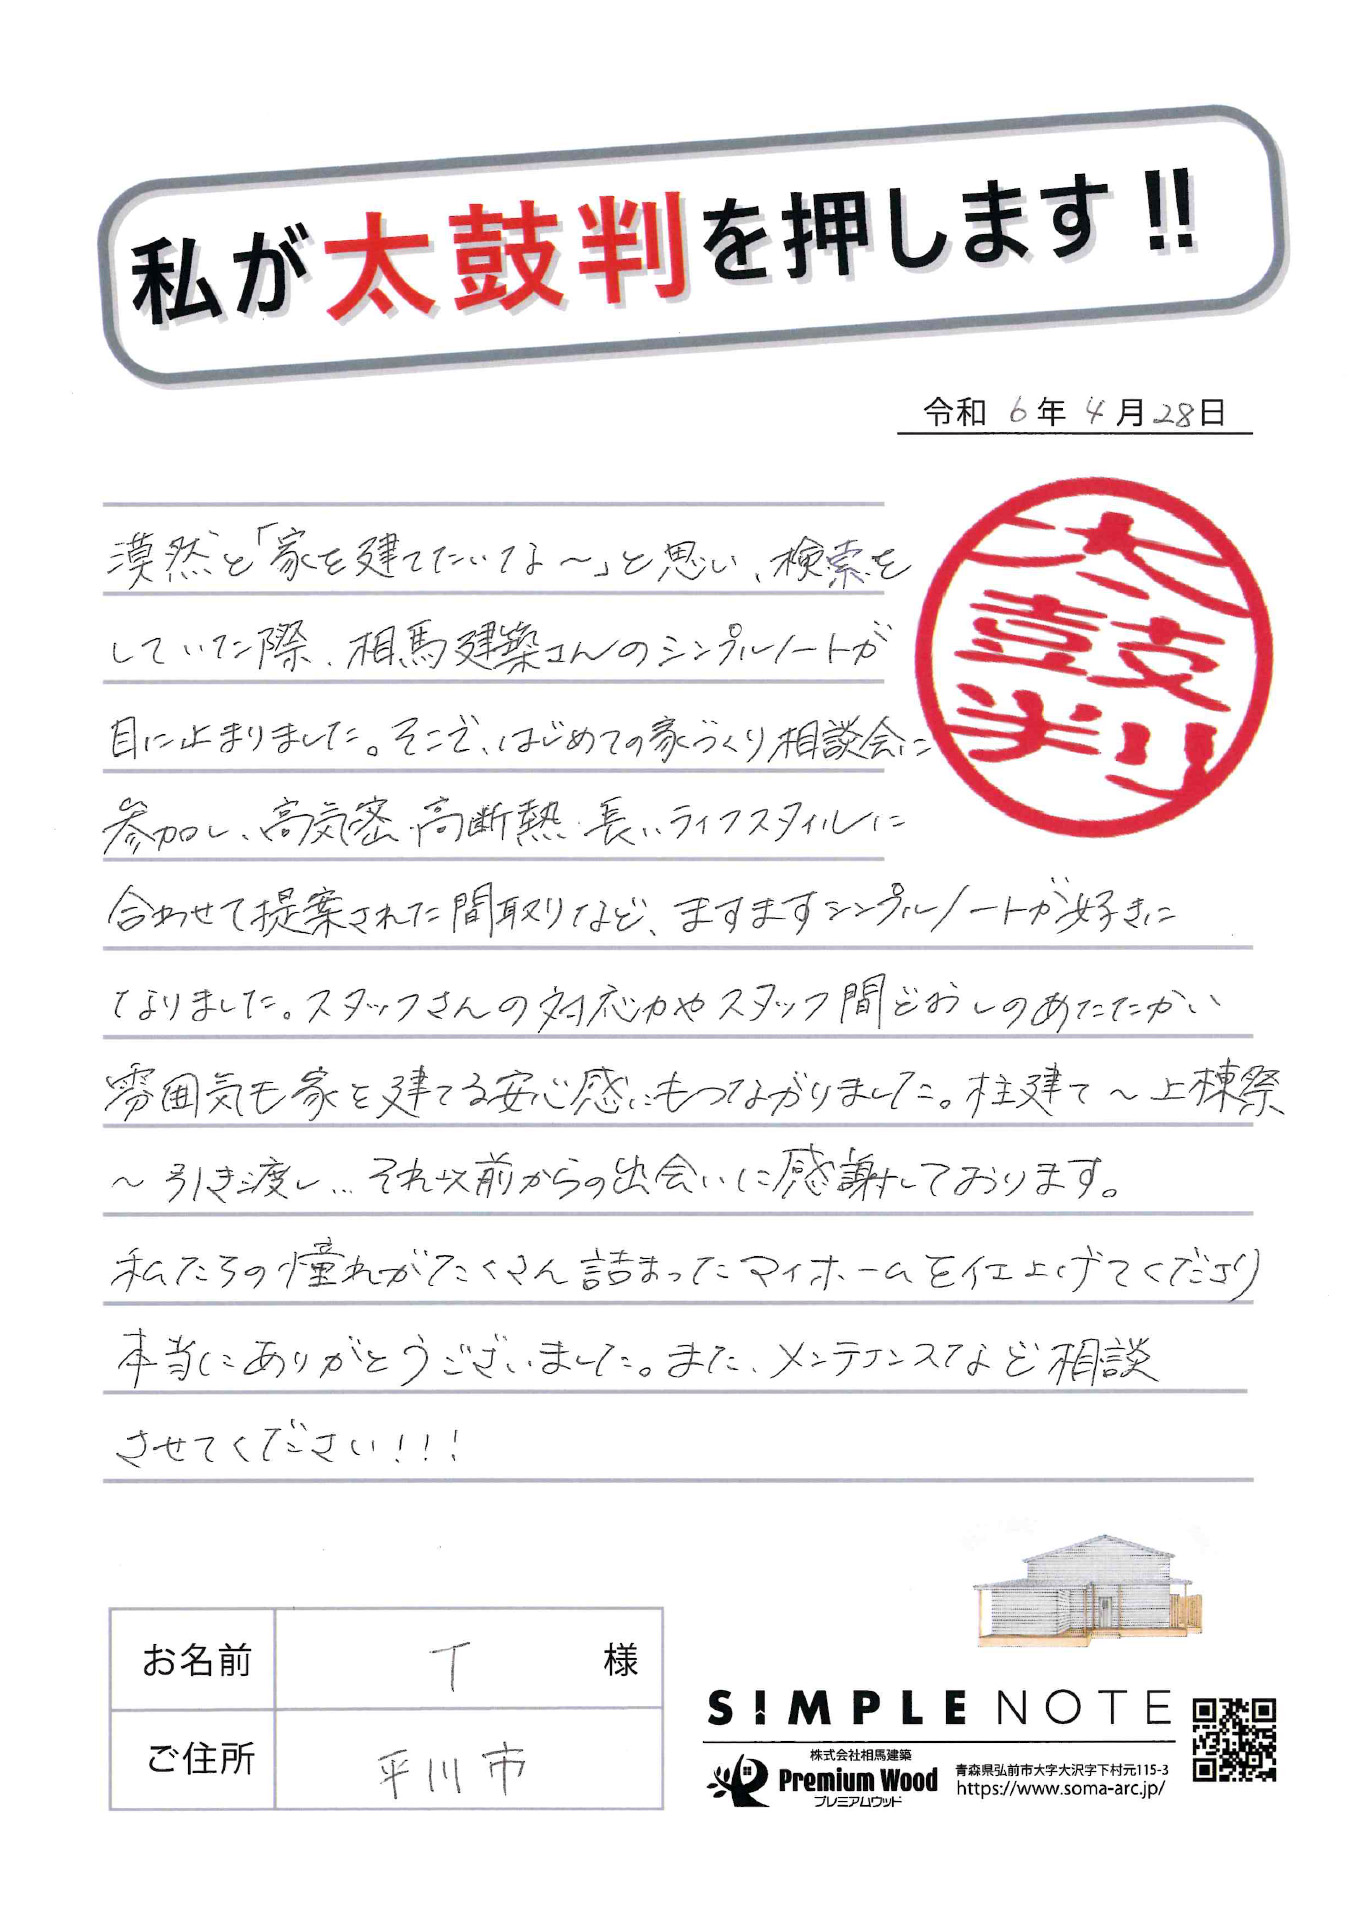 私が太鼓判を押します!!
令和 6年 4月28日
漠然と「家を建てたいな～」と思い、検索を
していた際、相馬建築さんのシンプルノートが
目に止まりました。そこで、はじめての家づくり相談会に
参加し、高気密・高断熱・長いライフスタイルに
合わせて提案された間取りなど、ますますシンプルノートが好きに
なりました。スタッフさんの対応力やスタッフ間どおしのあたたかい
雰囲気も家を建てる安心感にもつながりました。柱建て～上棟祭
～引き渡し…それ以前からの出会いに感謝しております。
私たちの憧れがたくさん詰まったマイホームを仕上げてくださり
本当にありがとうございました。また、メンテナンスなど相談
させてください!!!
太鼓判
お名前 T 様
ご住所 平川市
SIMPLE NOTE
株式会社相馬建築
Premium Wood
プレミアムウッド
青森県弘前市大字大沢字下村元115-3
https://www.soma-arc.jp/